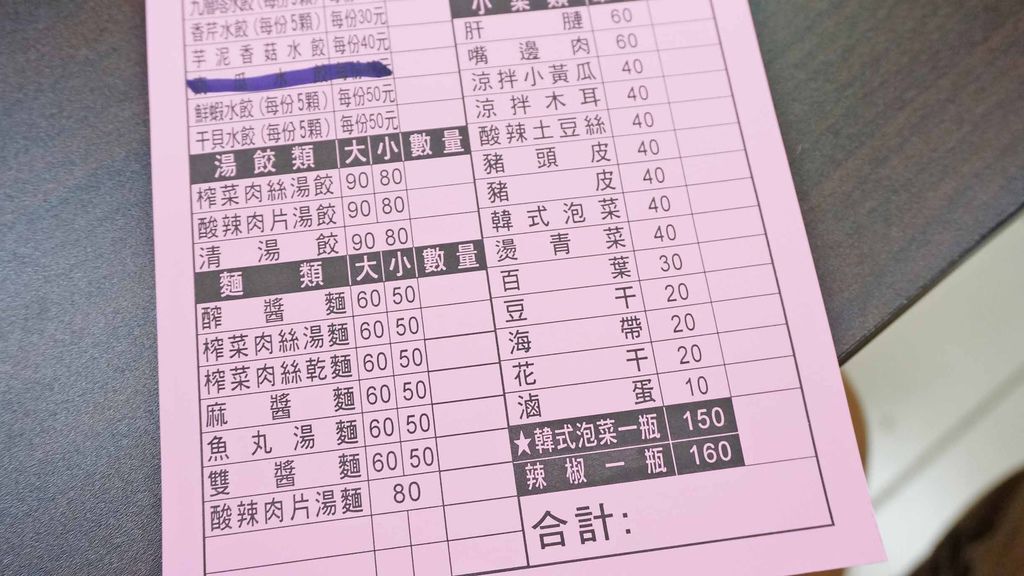 九層塔水餃(每份5顆)
香芹水餃(每份5顆) 每份30元
芋泥香菇水餃 每份40元
鮮蝦水餃(每份5顆) 每份50元
干貝水餃(每份5顆) 每份50元
湯餃類 大 小 數量
榨菜肉絲湯餃 90 80
酸辣肉片湯餃 90 80
清湯餃 90 80
麵類 大 小 數量
酢醬麵 60 50
榨菜肉絲湯麵 60 50
榨菜肉絲乾麵 60 50
麻醬麵 60 50
魚丸湯麵 60 50
雙醬麵 60 50
酸辣肉片湯麵 80
小菜類
肝腱 60
嘴邊肉 60
涼拌小黃瓜 40
涼拌木耳 40
酸辣土豆絲 40
豬頭皮 40
豬皮 40
韓式泡菜 40
燙青菜 40
百葉 30
豆干 20
海帶 20
花干 20
滷蛋 10
★韓式泡菜一瓶 150
辣椒一瓶 160
合計: